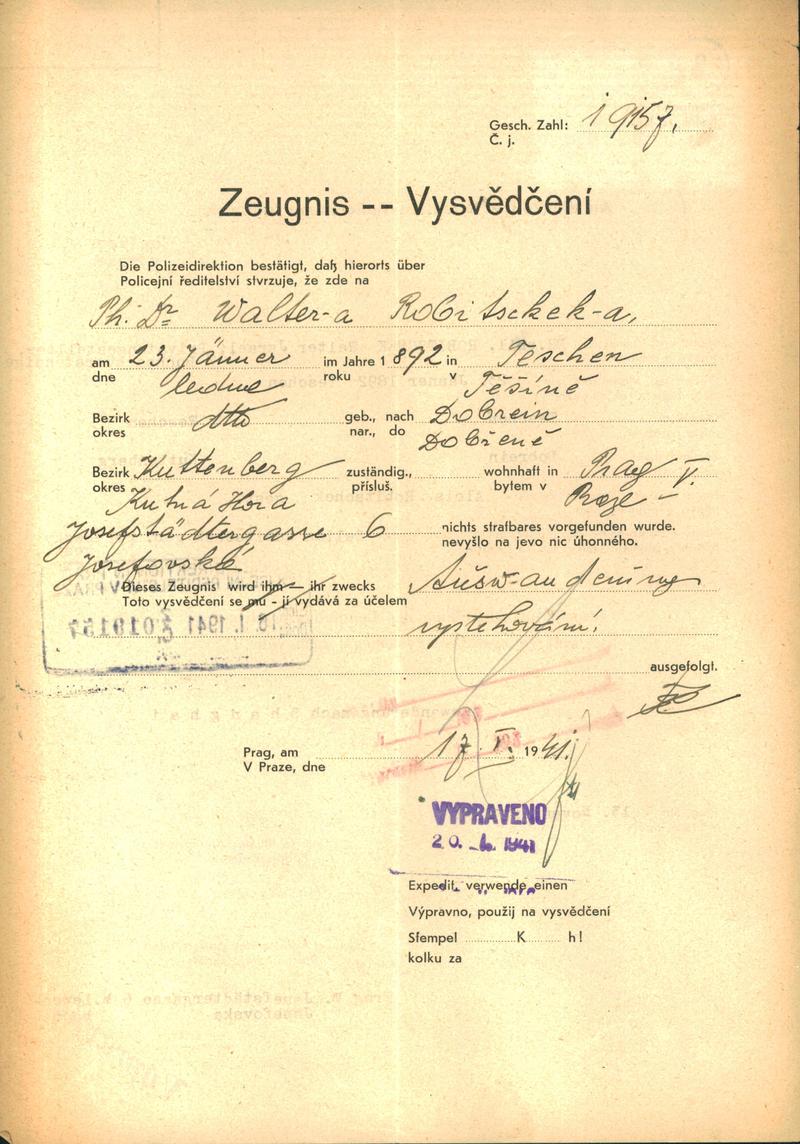 Gesch. Zahl: 19157.
Č. j.
Zeugnis -- Vysvědčení
Die Polizeidirektion bestätigt, daß hierorts über
Policejní ředitelství stvrzuje, že zde na
Ph. Dr. Walter-a Robitschek-a,
am 23. Jänner im Jahre 1892 in Teschen
dne ledna roku v Těšíně
Bezirk dtto geb., nach Dobrein
okres nar., do Dobřeně
Bezirk Kuttenberg zuständig., wohnhaft in Prag V.
okres Kutná Hora přísluš. bytem v Praze –
Josefstädtergasse 6 nichts strafbares vorgefunden wurde.
Josefovská nevyšlo na jevo nic úhonného.
Dieses Zeugnis wird ihm – ihr zwecks Auswanderung
Toto vysvědčení se mu - jí vydává za účelem
vystěhování.
019157 1941
ausgefolgt.
Prag, am 17. I. 1941.
V Praze, dne
VYPRAVENO
20. 1941
Expedit, verwende einen
Výpravno, použij na vysvědčení
Stempel K h!
kolku za